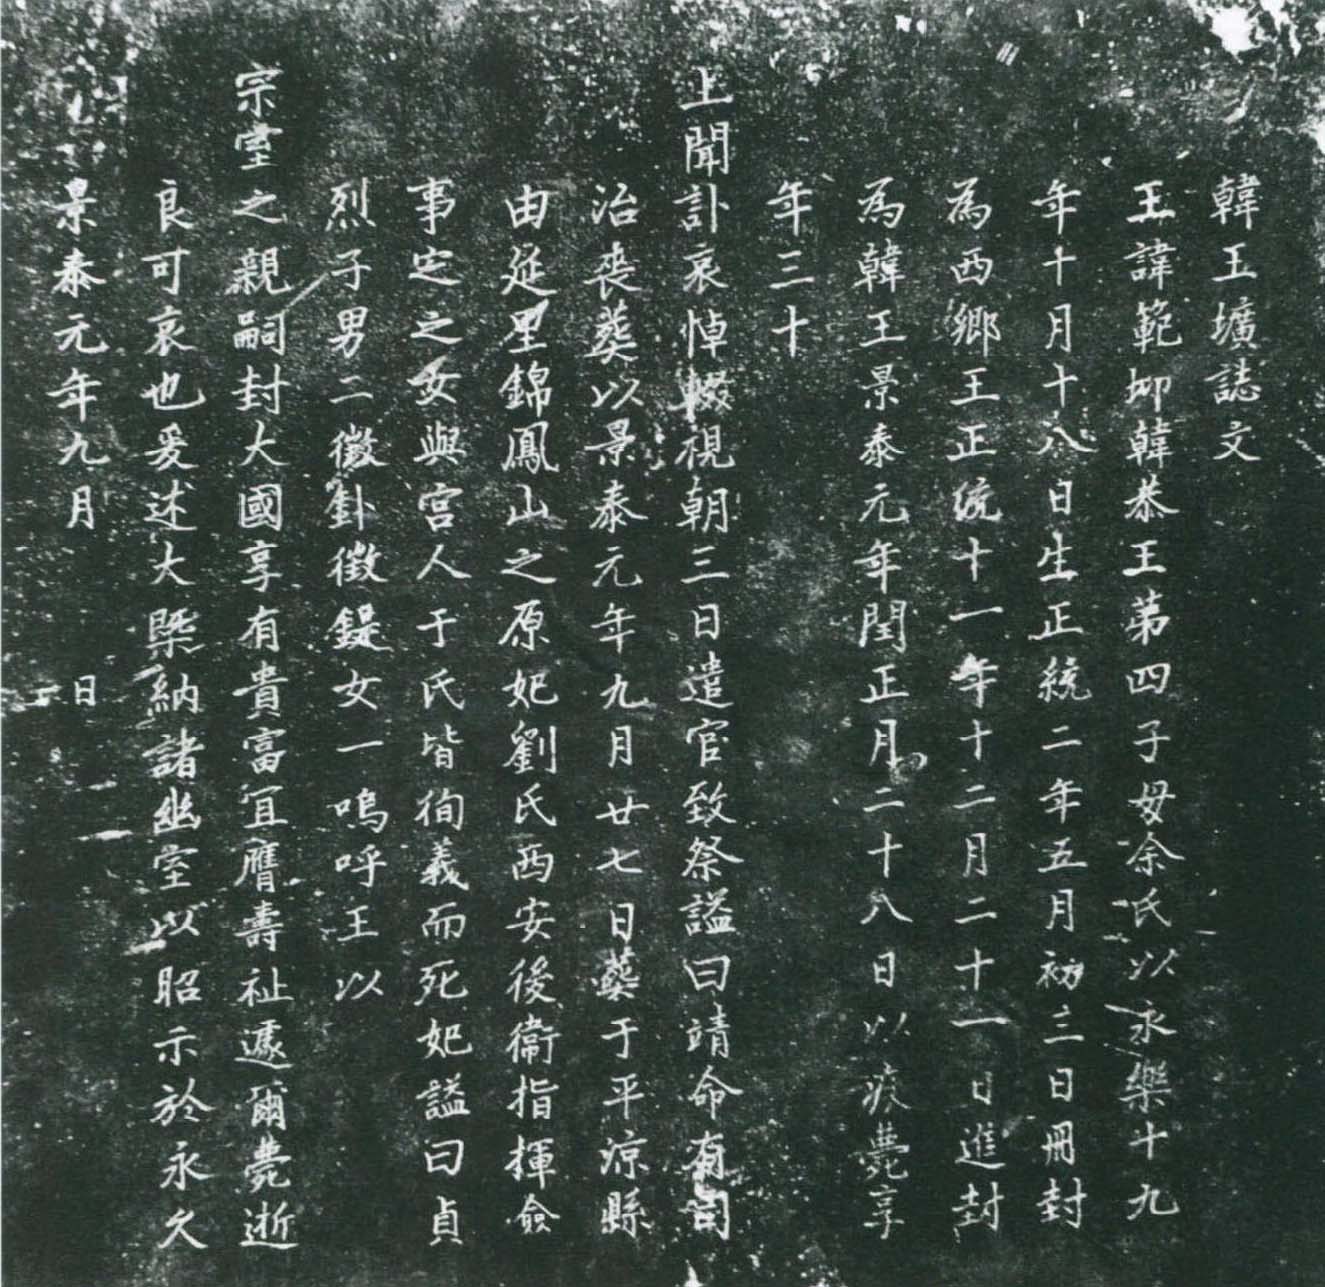 韓王壙誌文
王諱範𡊠韓恭王第四子母余氏以永樂十九
年十月十八日生正統二年五月初三日冊封
為西鄉王正統十一年十二月二十一日進封
為韓王景泰元年閏正月二十八日以疾薨享
年三十
上聞訃哀悼輟視朝三日遣官致祭謚曰靖命有司
治喪葬以景泰元年九月廿七日葬于平涼縣
由延里錦鳳山之原妃劉氏西安後衛指揮僉
事定之女與宮人于氏皆徇義而死妃謚曰貞
烈子男二徵釙徵鍉女一嗚呼王以
宗室之親嗣封大國享有貴富宜膺壽祉遽爾薨逝
良可哀也爰述大槩納諸幽室以昭示於永久
景泰元年九月 日